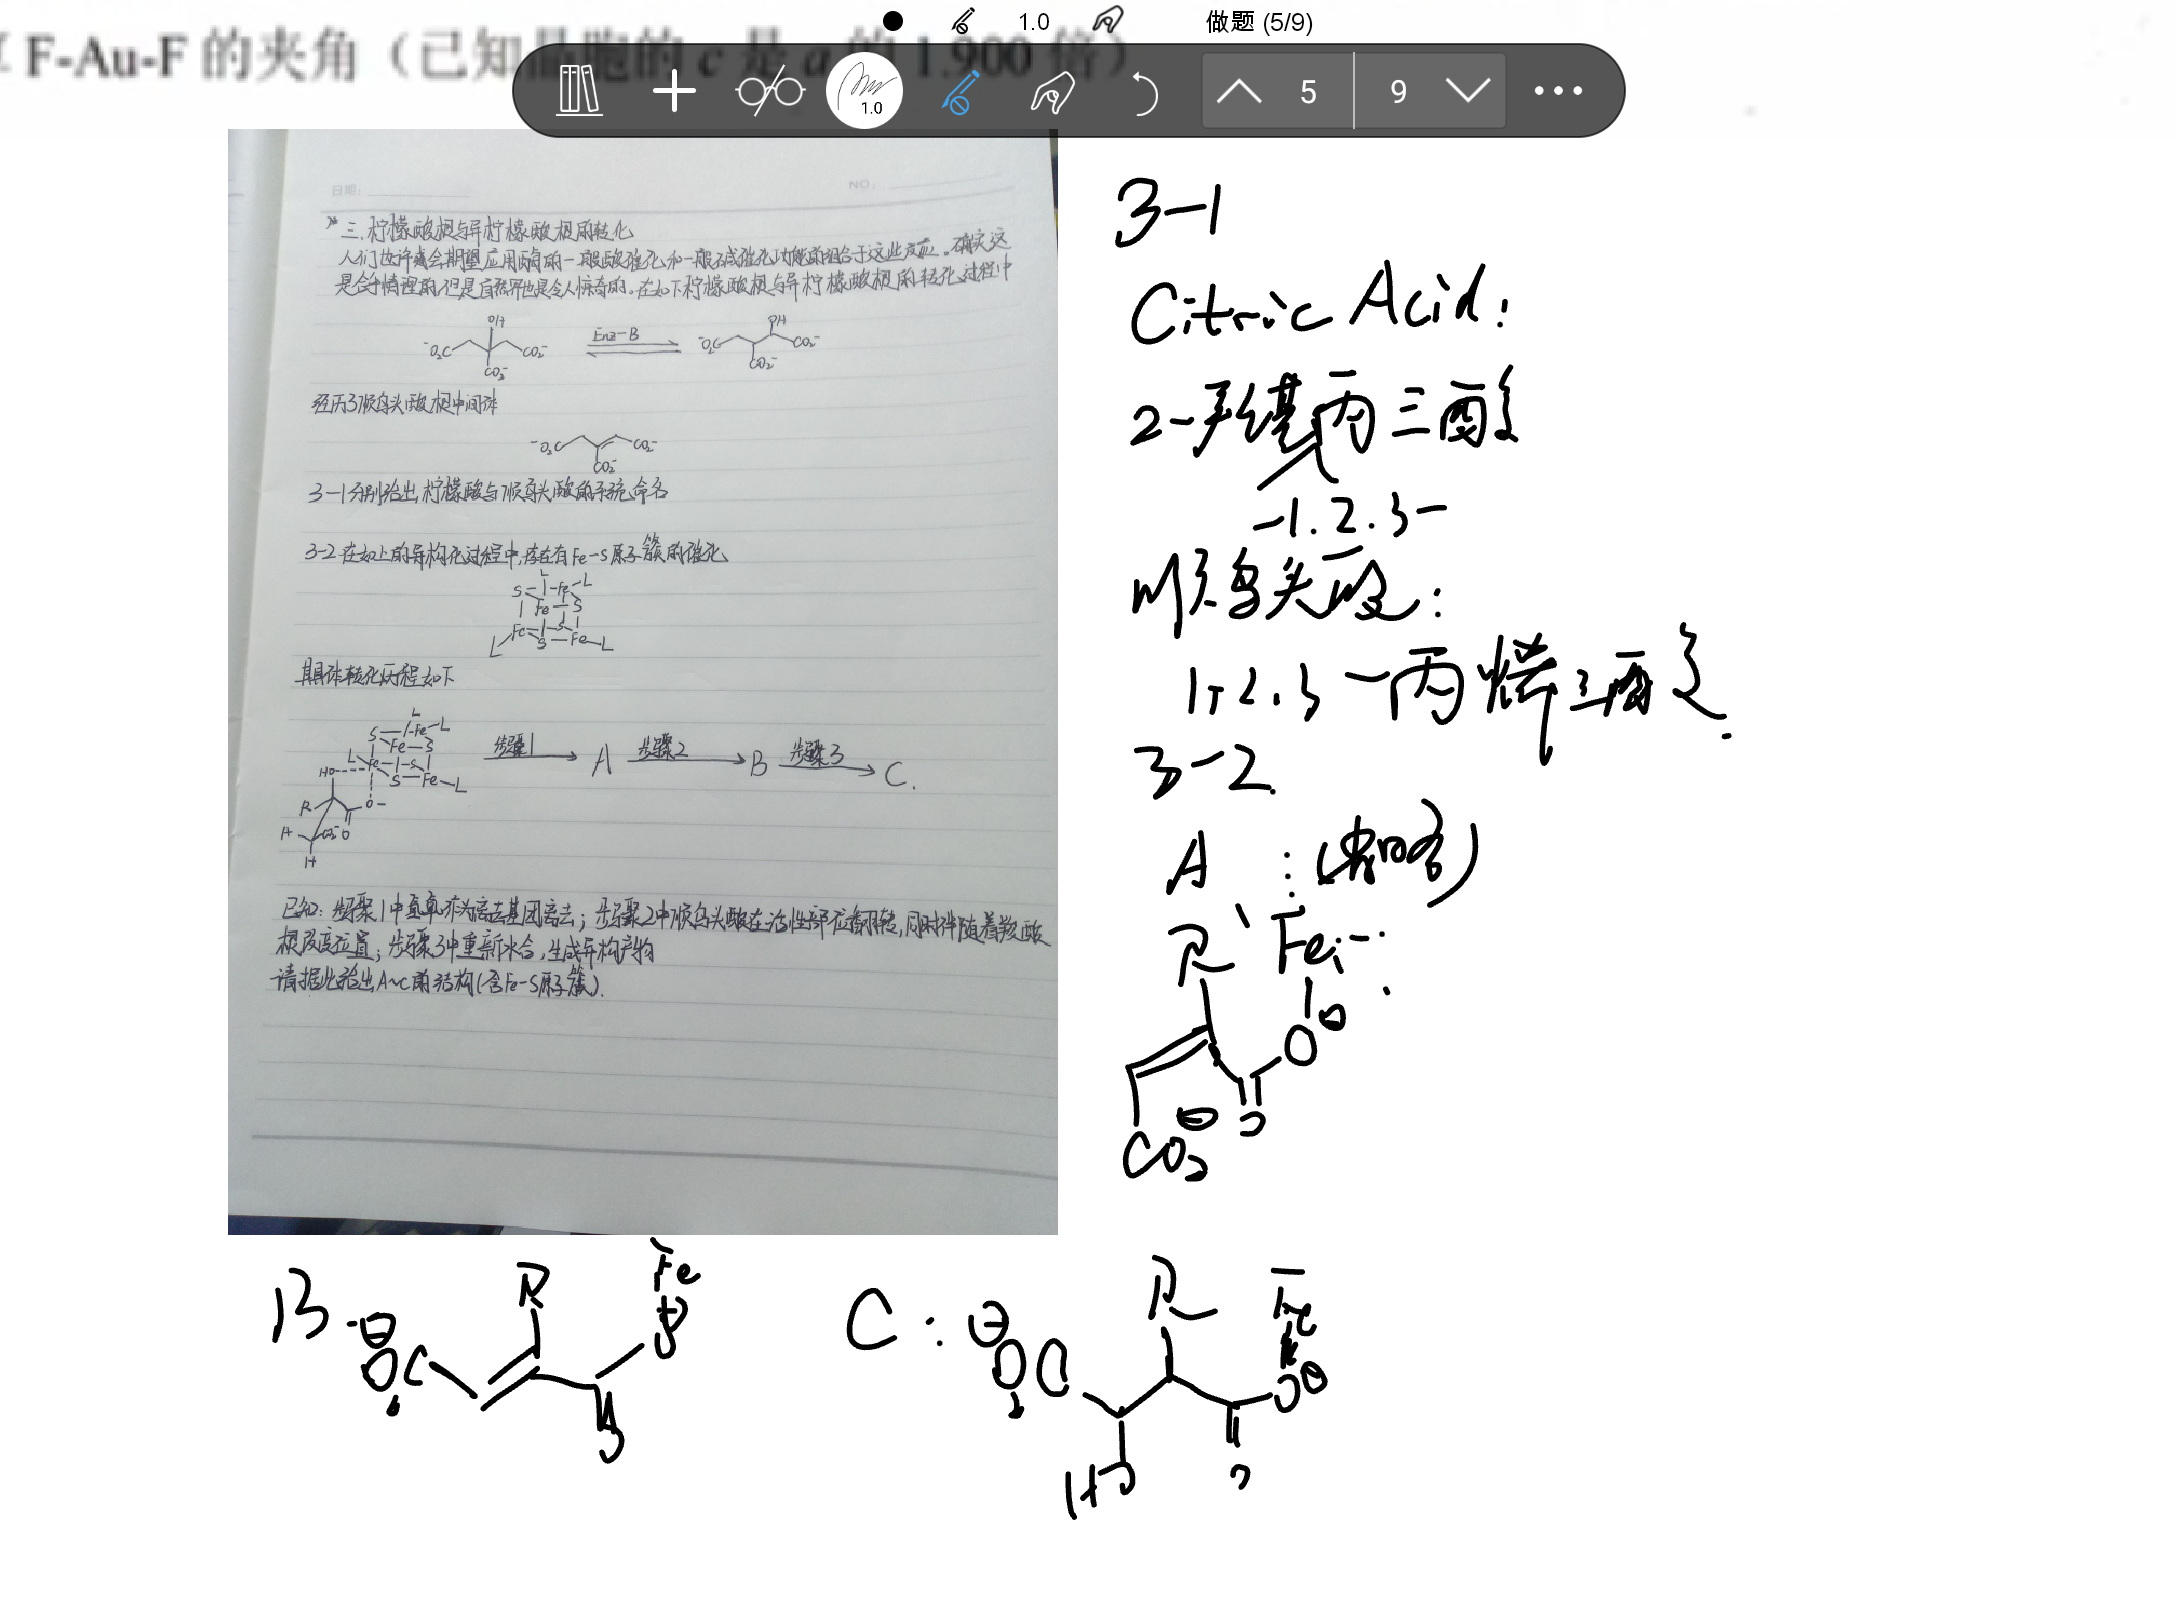 做题 (5/9)
1.0
F-Au-F 的夹角（已知晶胞的 c 是 a 的 1.900 倍）
1.0
5 9
日期:
NO:
三.柠檬酸根与异柠檬酸根的转化
人们也许会期望应用酶的一般酸催化和一般碱催化功能的组合于这些反应。确实这
是合乎情理的,但是自然界也是令人惊奇的。在如下柠檬酸根与异柠檬酸根的转化过程中
OH
⁻O₂C CO₂⁻
CO₂⁻
Enz-B
OH
⁻O₂C CO₂⁻
CO₂⁻
经历了顺乌头酸根中间体
⁻O₂C CO₂⁻
CO₂⁻
3-1分别给出柠檬酸与顺乌头酸的系统命名
3-2 在如上的异构化过程中,存在有Fe-S原子簇的催化
L
S Fe L
Fe S
Fe S
L S Fe L
具体转化历程如下
L
S Fe L
Fe S
L Fe S
HO S Fe L
R O-
H CO₂⁻ O
H
步骤1 A 步骤2 B 步骤3 C.
已知: 步骤1中直立 为离去基团离去; 步骤2中顺乌头酸在活性部位翻转,同时伴随着羧酸
根改变位置; 步骤3中重新水合,生成异构产物
请据此给出A~C的结构(含Fe-S原子簇).
3-1
Citric Acid:
2-羟基丙三酸
-1.2.3-
顺乌头酸:
1,2,3-丙烯三酸.
3-2.
A :(
R Fe
O⊖
CO₂⊖ O
B ⊖O₂C R Fe
O
C: ⊖O₂C R Fe
O⊖
HO O